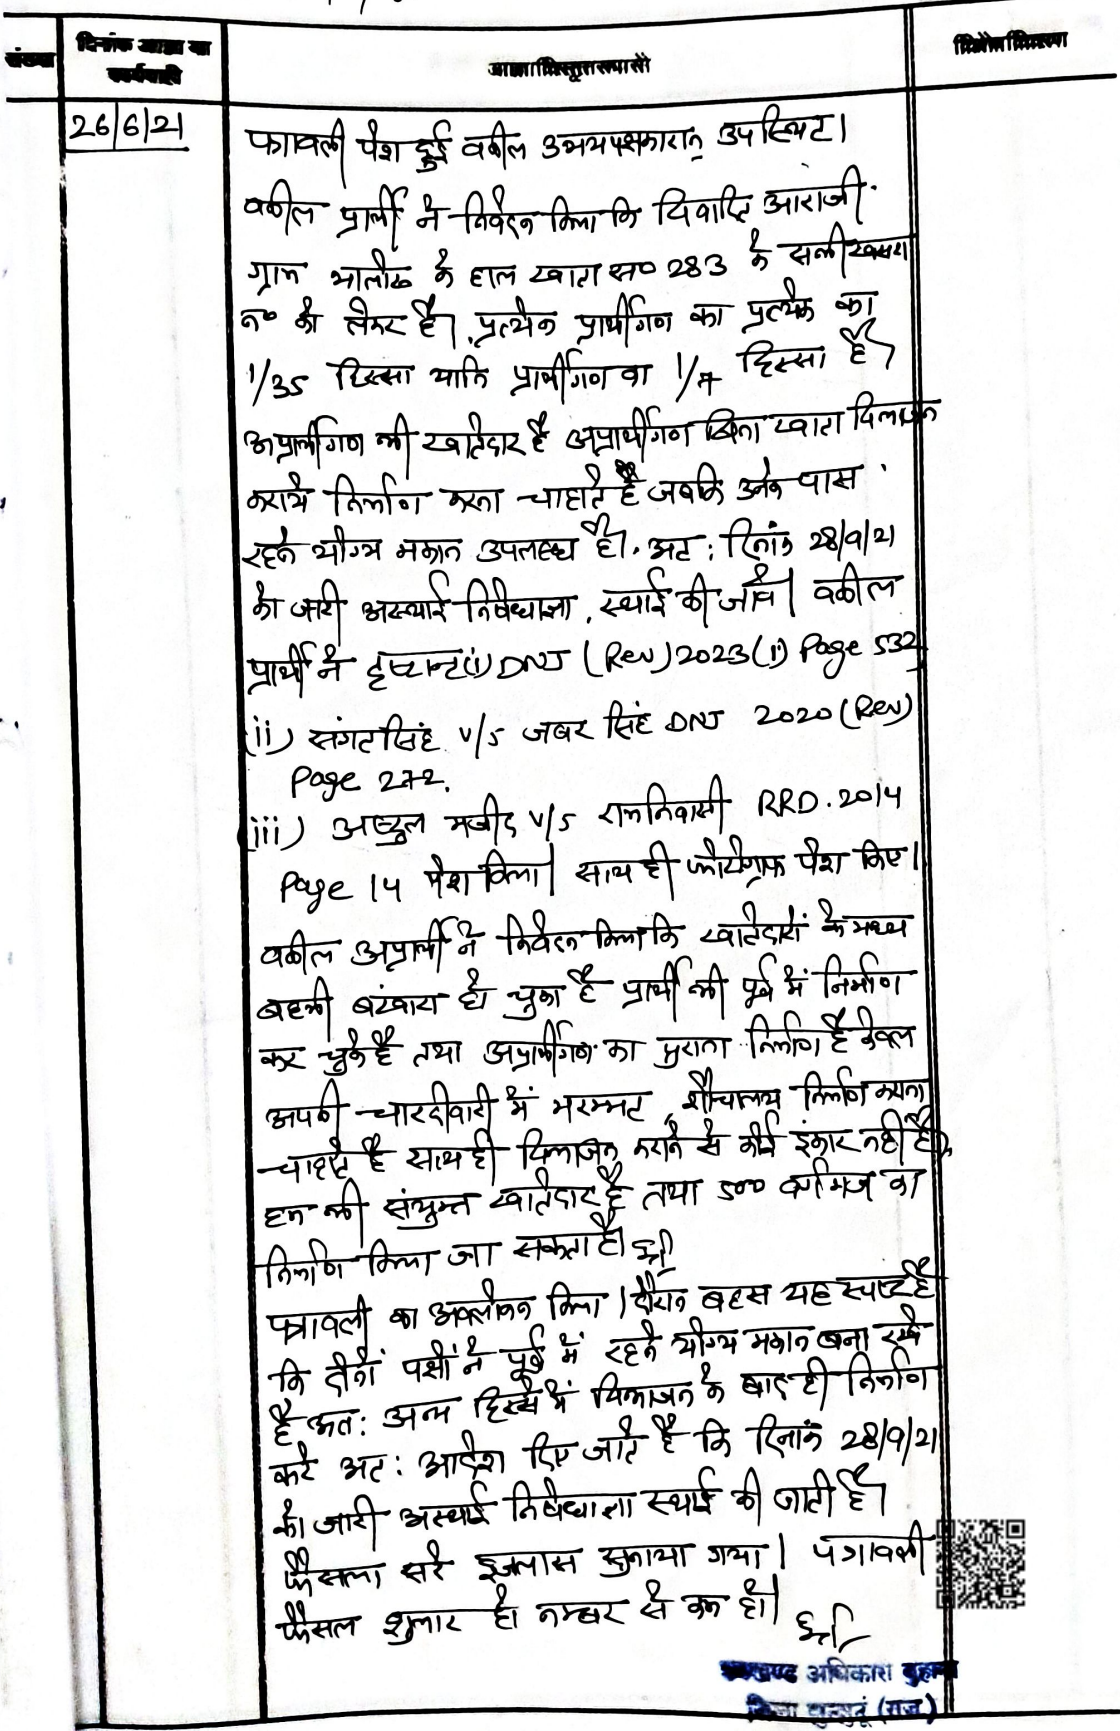 संख्या
दिनांक आज्ञा या
कार्यवाही
आज्ञा विस्तृत रूप से
26/6/21
पत्रावली पेश हुई वकील उभयपक्षकारान् उपस्थित।
वकील प्रार्थी ने निवेदन किया कि विवादित आराजी
ग्राम भालोठ के हाल खाता स० 283 के सभी खसरा
न० को लेकर है। प्रत्येक प्रार्थीगण का प्रत्येक का
1/35 हिस्सा यानि प्रार्थीगण का 1/7 हिस्सा है।
अप्रार्थीगण भी खातेदार है अप्रार्थीगण बिना खाता विभाजन
कराये निर्माण करना चाहते है जबकि उनके पास
रहने योग्य मकान उपलब्ध है। अतः दिनांक 28/9/21
को जारी अस्थाई निषेधाज्ञा, स्थाई की जावे। वकील
प्रार्थी ने दृष्टान्त (i) DNJ (Rev) 2023 (1) Page 532
(ii) संगतसिंह v/s जबर सिंह DNJ 2020 (Rev)
Page 272.
(iii) अब्दुल मजीद v/s रामनिवासी RRD. 2014
Page 14 पेश किया। साथ ही फोटोग्राफ पेश किए।
वकील अप्रार्थी ने निवेदन किया कि खातेदारों के मध्य
बहमी बंटवारा हो चुका है प्रार्थी भी पूर्व में निर्माण
कर चुके है तथा अप्रार्थीगण का पुराना निर्माण है केवल
अपनी चारदीवारी में मरम्मत, शौचालय निर्माण करना
चाहते है साथ ही विभाजन कराने से कोई इंकार नहीं है।
हम भी संयुक्त खातेदार है तथा 500 वर्गगज का
निर्माण किया जा सकता है।
पत्रावली का अवलोकन किया। दौरान बहस यह स्पष्ट है
कि दोनों पक्षों ने पूर्व में रहने योग्य मकान बना रखे
है अतः अन्य हिस्से में विभाजन के बाद ही निर्माण
करे अतः आदेश दिए जाते है कि दिनांक 28/9/21
को जारी अस्थाई निषेधाज्ञा स्थाई की जाती है।
फैसला सरे इजलास सुनाया गया। पत्रावली
फैसल शुमार हो नम्बर से कम हो।
उपखण्ड अधिकारी बुहाना
जिला झुन्झुनूं (राज.)